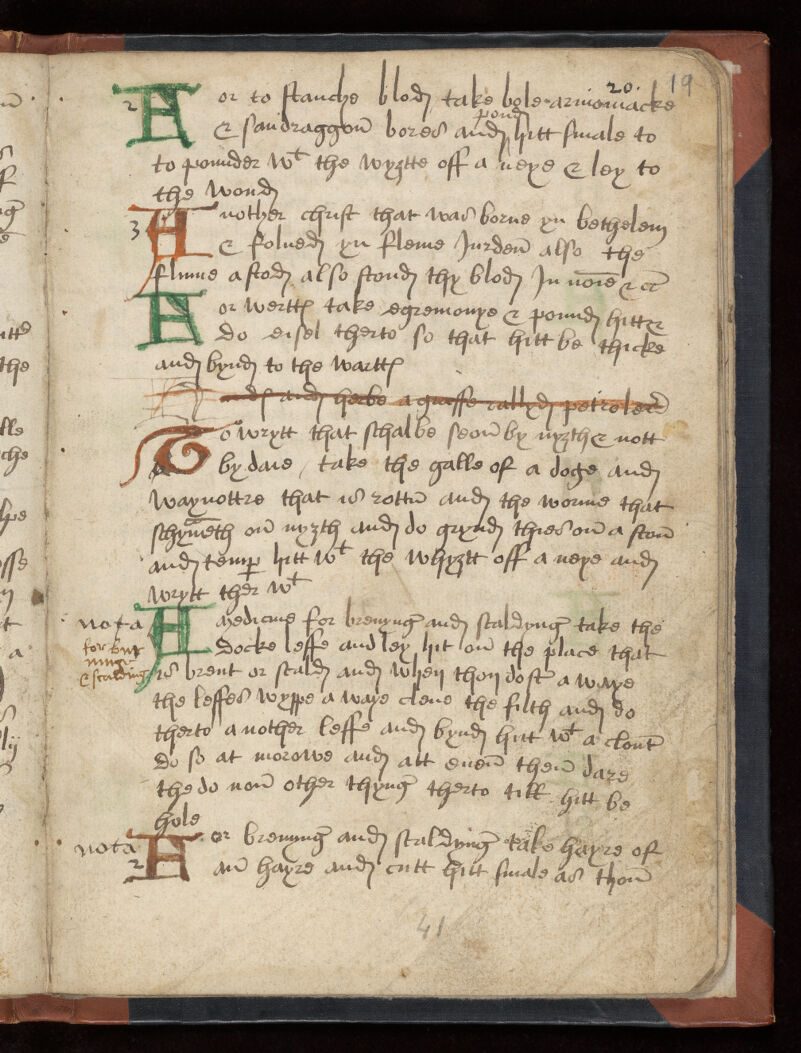 20. 19
2 For to stanche blod take bole armoniacke
& sandraggoun bores and pond hitt smale to
to pouuder wt the wyztte off a neye & ley to
the wond
3 Another christ that was borne yn bethelem
& folued yn fleme Jurden also the
flume astod also stond thy blod In noie & ce
For wertt take egremonye & pound hitt &
do eisel therto so that hitt be thicke
and bynd to the wartt
and herbe a grasse callyd
To wrytt that schalbe seon by nyzth & nott
by daie / take the galle of a doge and
waynottre that is rottun and the worme that
schyneth on nyzth and do grynd thies on a ston
and temper hitt wt the whyztt off a neye and
wrytt ther wt
nota A medicine for brenyng and scaldyng take the
for bur
ninge
& scalding
docke leffe and ley hit on the place that
is brent or scald and when thou dost a waye
the leffes wyppe a waye clene the filth and do
therto a nother leffe and bynd hitt wt a clout
do so at morowe and att euen then dare
the do non other thyng therto till hitt be
hole
nota For brenning and scaldying take hayre of
2 an hayre and cutt hitt smale as thou
41